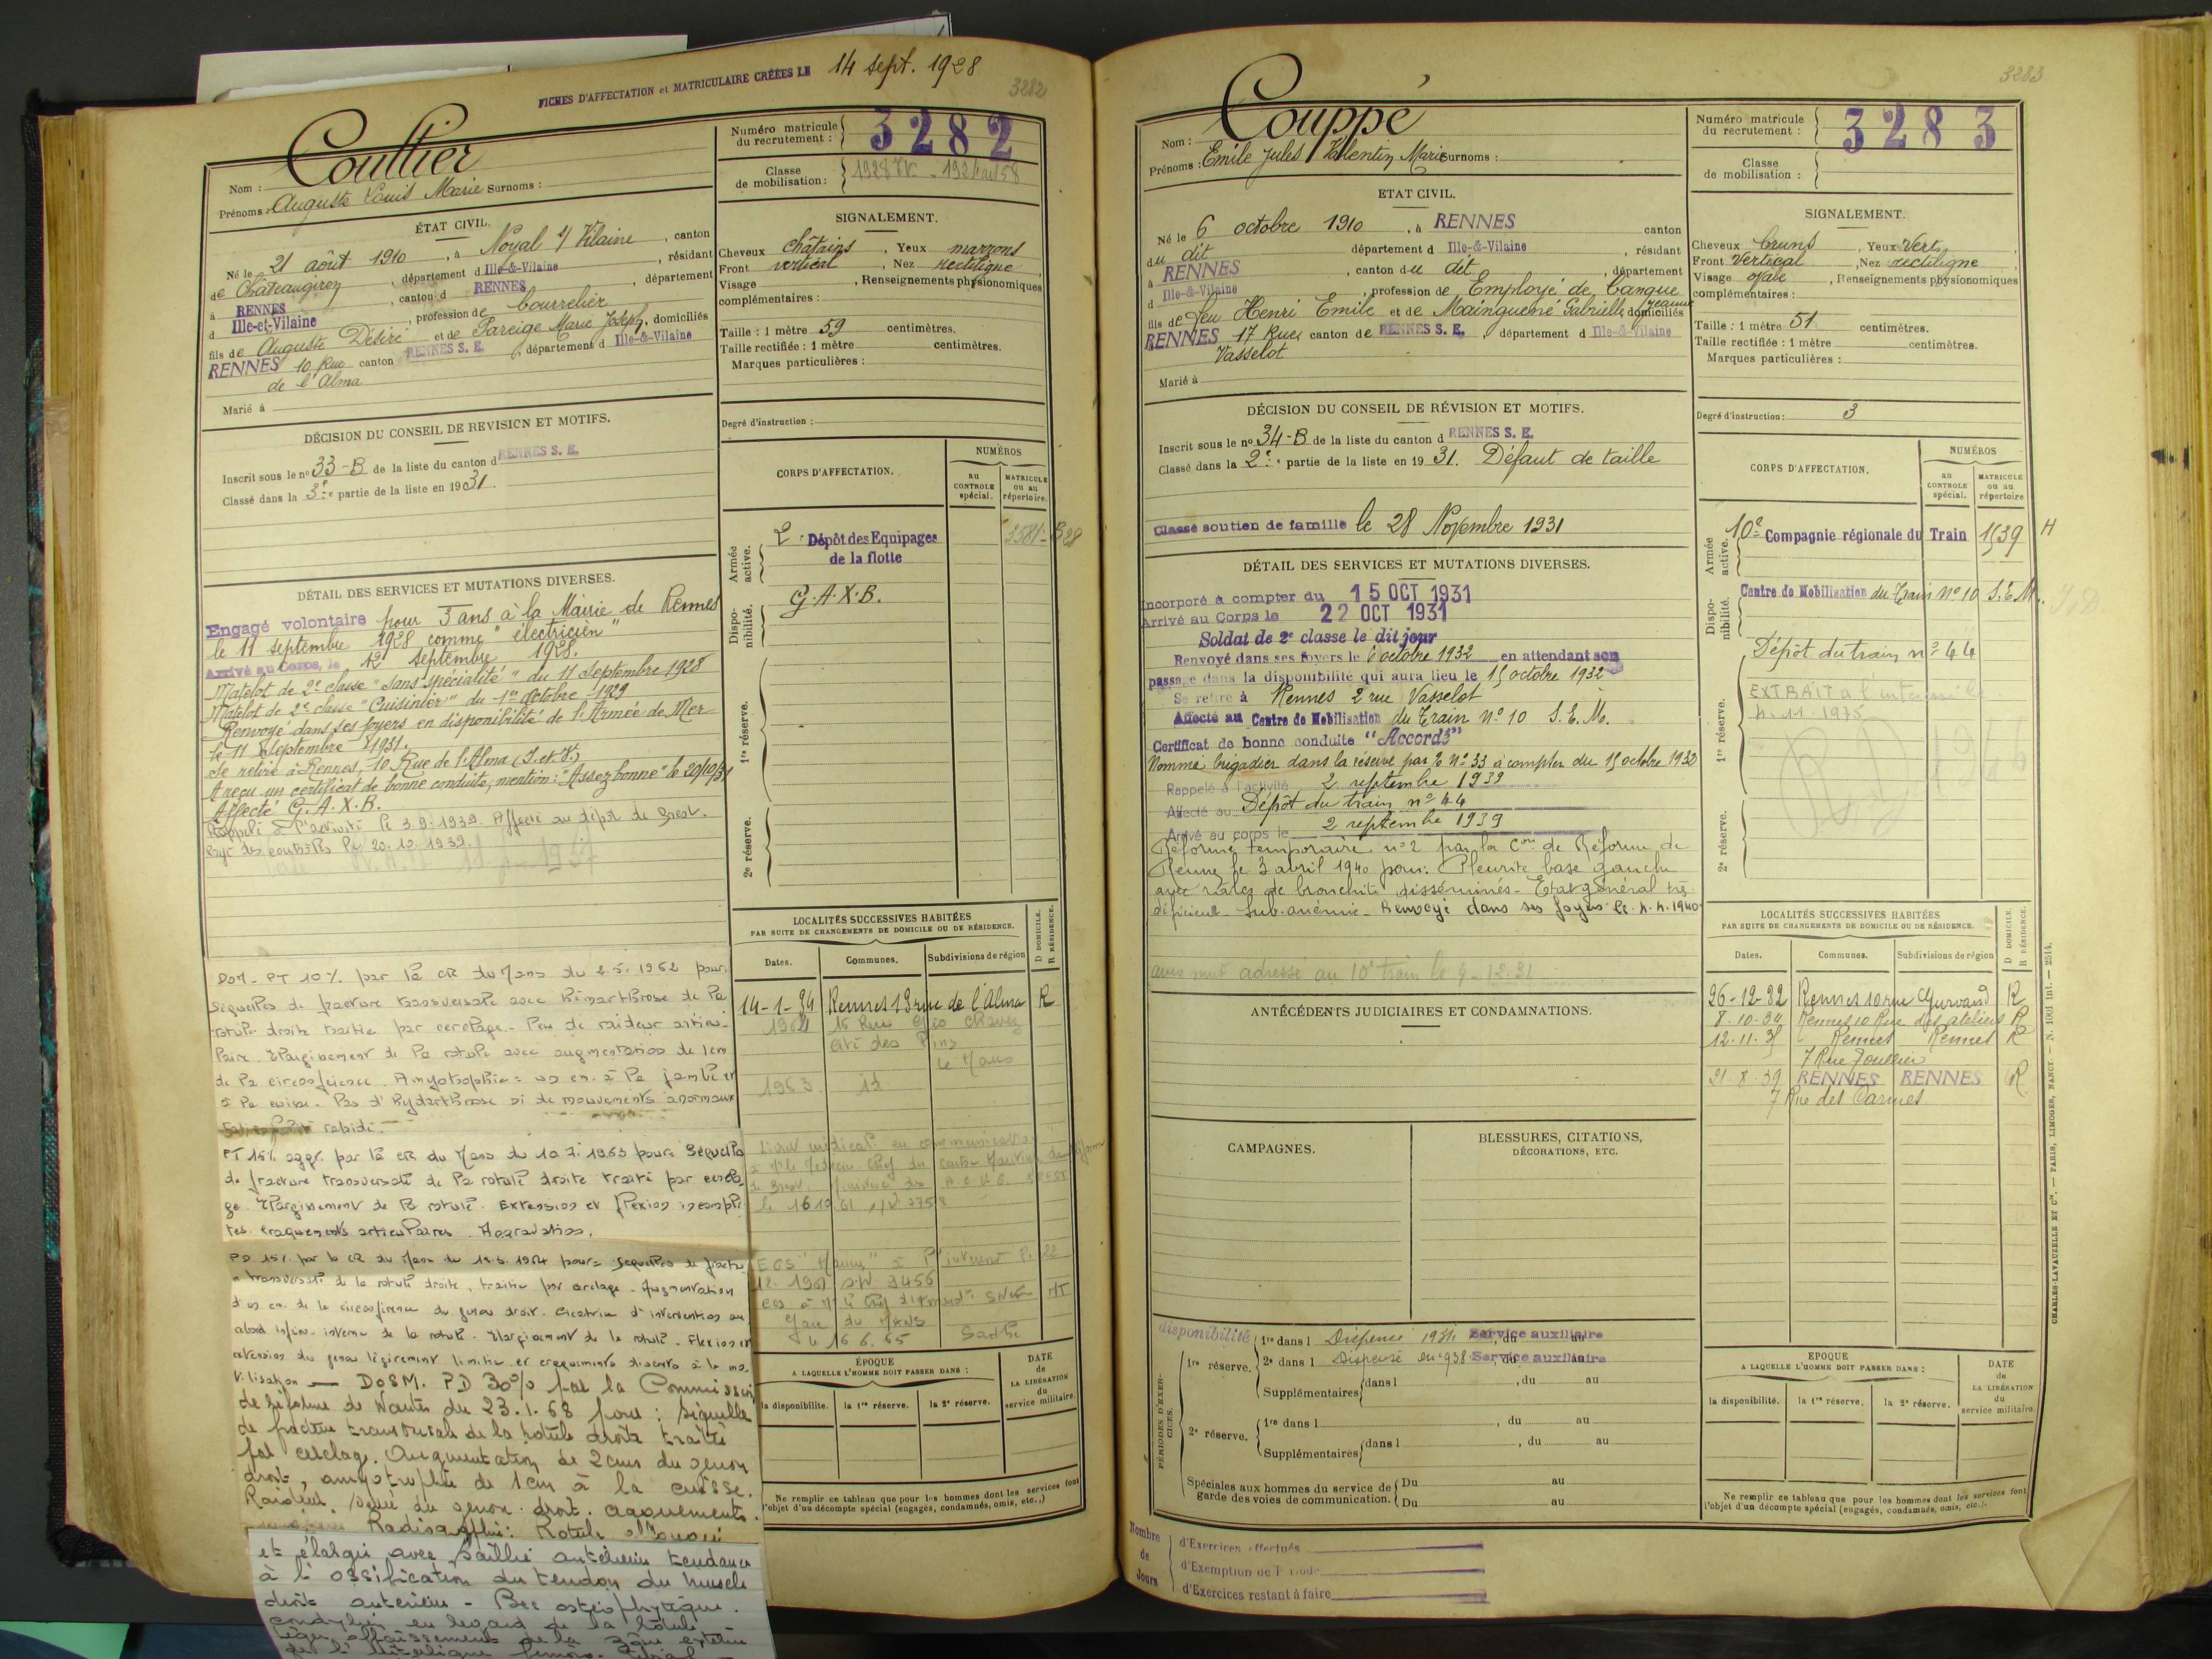 FICHES D'AFFECTATION et MATRICULAIRE CRÉÉES LE 14 sept. 1928
3282
Nom : Coultier
Prénoms : Auguste Louis Marie Surnoms :
Numéro matricule du recrutement : 3282
Classe de mobilisation :
ÉTAT CIVIL.
Né le 21 août 1910, à Noyal s/ Vilaine, canton
de Châteaugiron, département d Ille-&-Vilaine, résidant
à RENNES, canton d RENNES, département
d Ille-et-Vilaine, profession de bourrelier
fils de Auguste Désiré et de Pareige Marie Joseph, domiciliés
RENNES 10 Rue canton RENNES S. E., département d Ille-&-Vilaine
de l'Alma
Marié à
SIGNALEMENT.
Cheveux châtains, Yeux marrons
Front vertical, Nez rectiligne
Visage , Renseignements physionomiques
complémentaires :
Taille : 1 mètre 59 centimètres.
Taille rectifiée : 1 mètre centimètres.
Marques particulières :
Degré d'instruction :
DÉCISION DU CONSEIL DE REVISION ET MOTIFS.
Inscrit sous le n° 33-B de la liste du canton d RENNES S. E.
Classé dans la 3e partie de la liste en 1931.
DÉTAIL DES SERVICES ET MUTATIONS DIVERSES.
Engagé volontaire pour 3 ans à la Mairie de Rennes
le 11 septembre 1928 comme "électricien"
Arrivé au Corps, le 12 septembre 1928.
Matelot de 2e classe "Sans spécialité" du 11 Septembre 1928
Matelot de 2e classe "Cuisinier" du 1er Octobre 1929
Renvoyé dans ses foyers en disponibilité de l'Armée de Mer
le 11 Septembre 1931.
Se retire à Rennes, 10 Rue de l'Alma (I. et V.)
A reçu un certificat de bonne conduite, mention : "Assez bonne" le 20/10/31
Affecté G.A.X.B.
Rappelé à l'activité le 3.9.1939. Affecté au dépôt de Brest.
Rayé des contrôles le 20.12.1939.
CORPS D'AFFECTATION.
NUMÉROS
au CONTROLE spécial.
MATRICULE ou au répertoire.
Armée active.
2e Dépôt des Equipages
de la flotte
Disponibilité.
G.A.X.B.
1re réserve.
2e réserve.
DOM - PT 10% par la CR du Mans du 2.5.1962 pour:
Séquelles de fracture transversale avec hémarthrose de la
rotule droite traitée par cerclage - Peu de raideur articu-
laire. Elargissement de la rotule avec augmentation de 1cm
de la circonférence. Amyotrophie = un cm. à la jambe et
à la cuisse. Pas d'hydarthrose ni de mouvements anormaux
PT 15% aggr. par la CR du Mans du 10.7.1963 pour: Séquelle
de fracture transversale de la rotule droite traité par cercla-
ge. Elargissement de la rotule. Extension et flexion incomplè-
tes. Craquements articulaires. Aggravation.
PD 15% par la CR du Mans du pour: Séquelles de fractu-
re transversale de la rotule droite, traitée par cerclage. Augmentation
d'un cm. de la circonférence du genou droit. Cicatrice d'intervention au
rebord inféro-interne de la rotule. Elargissement de la rotule. Flexion et
extension du genou légèrement limitée et craquements discrets à la mo-
bilisation — DOSM. PD 30% par la Commission
de réforme de Nantes du 23.1.68 pour : séquelle
de fracture transversale de la rotule droite traitée
par cerclage. Augmentation de 2 cms du genou
droit, amyotrophie de 1 cm à la cuisse.
Raideur du genou droit. craquements.
Radiographie: Rotule
et élargie avec saillie antérieure tendance
à l'ossification du tendon du muscle
droit antérieur - Bec ostéophytique
condylien en regard de la rotule
léger affaissement de la zône externe
de l'interligne fémoro-tibial
LOCALITÉS SUCCESSIVES HABITÉES
PAR SUITE DE CHANGEMENTS DE DOMICILE OU DE RÉSIDENCE.
D DOMICILE. R RÉSIDENCE.
Dates. Communes. Subdivisions de région
14-1-34 Rennes 13 rue de l'Alma R
Cité des Pins
Le Mans
1963 id
ÉPOQUE
A LAQUELLE L'HOMME DOIT PASSER DANS :
DATE de LA LIBÉRATION du service militaire.
la disponibilité. la 1re réserve. la 2e réserve.
Ne remplir ce tableau que pour les hommes dont les services font
l'objet d'un décompte spécial (engagés, condamnés, omis, etc.,)
3283
Nom : Couppé
Prénoms : Emile Jules Valentin Marie Surnoms :
Numéro matricule du recrutement : 3283
Classe de mobilisation :
ETAT CIVIL.
Né le 6 octobre 1910, à RENNES canton
du dit département d Ille-&-Vilaine, résidant
à RENNES, canton du dit, département
d Ille-&-Vilaine, profession de Employé de banque
fils de feu Henri Emile et de Mainguené Gabrielle Jeanne domiciliés
RENNES 17 Rue canton de RENNES S. E., département d Ille-&-Vilaine
Vasselot
Marié à
SIGNALEMENT.
Cheveux bruns, Yeux Vert
Front Vertical, Nez rectiligne
Visage ovale, Renseignements physionomiques
complémentaires :
Taille : 1 mètre 51 centimètres.
Taille rectifiée : 1 mètre centimètres.
Marques particulières :
Degré d'instruction : 3
DÉCISION DU CONSEIL DE RÉVISION ET MOTIFS.
Inscrit sous le n° 34-B de la liste du canton d RENNES S. E.
Classé dans la 2e partie de la liste en 1931. Défaut de taille
Classé soutien de famille le 28 Novembre 1931
DÉTAIL DES SERVICES ET MUTATIONS DIVERSES.
Incorporé à compter du 15 OCT 1931
Arrivé au Corps le 22 OCT 1931
Soldat de 2e classe le dit jour
Renvoyé dans ses foyers le 6 octobre 1932 en attendant son
passage dans la disponibilité qui aura lieu le 15 octobre 1932
Se retire à Rennes 2 rue Vasselot
Affecté au Centre de Mobilisation du Train N° 10 S.E.M.
Certificat de bonne conduite "Accordé"
Nommé brigadier dans la réserve par N° 33 à compter du 15 octobre 1932
Rappelé à l'activité 2 septembre 1939
Affecté au Dépôt du train n° 44
Arrivé au corps le 2 septembre 1939
Réforme temporaire n° 2 par la Con de Réforme de
Rennes le 3 avril 1940 pour: Pleurite base gauche
avec râles de bronchite disséminés - Etat général très
déficient - Sub-anémie - Renvoyé dans ses foyers le 4.4.1940
avis mut adressé au 10e train le 9-12-31
CORPS D'AFFECTATION.
NUMÉROS
au CONTROLE spécial.
MATRICULE ou au répertoire
Armée active.
10e Compagnie régionale du Train 1539 H
Disponibilité.
Centre de Mobilisation du Train N° 10 S.E.M.
Dépôt du train n° 44
1re réserve.
2e réserve.
ANTÉCÉDENTS JUDICIAIRES ET CONDAMNATIONS.
CAMPAGNES.
BLESSURES, CITATIONS, DÉCORATIONS, ETC.
LOCALITÉS SUCCESSIVES HABITÉES
PAR SUITE DE CHANGEMENTS DE DOMICILE OU DE RÉSIDENCE.
D DOMICILE. R RÉSIDENCE.
Dates. Communes. Subdivisions de région
26-12-32 Rennes 10 rue Gurvand R
8-10-34 Rennes 10 Rue des ateliers R
12.11.35 Rennes Rennes R
7 Rue Poullier
21.8.39 RENNES RENNES R
7 Rue des Carmes
disponibilité
PÉRIODES D'EXERCICES.
1re réserve. 1re dans l Dispensé 1934 Service auxiliaire
2e dans l Dispensé en 1938 Service auxiliaire
Supplémentaires dans l , du au
2e réserve. 1re dans l , du au
Supplémentaires dans l , du au
Spéciales aux hommes du service de garde des voies de communication. Du au
Du au
EPOQUE
A LAQUELLE L'HOMME DOIT PASSER DANS :
DATE de LA LIBÉRATION du service militaire.
la disponibilité. la 1re réserve. la 2e réserve.
Ne remplir ce tableau que pour les hommes dont les services font
l'objet d'un décompte spécial (engagés, condamnés, omis, etc.).
Nombre de Jours
d'Exercices effectués
d'Exemption de Période
d'Exercices restant à faire
CHARLES-LAVAUZELLE ET Cie. — PARIS, LIMOGES, NANCY — N. 1001 int. — 2514.